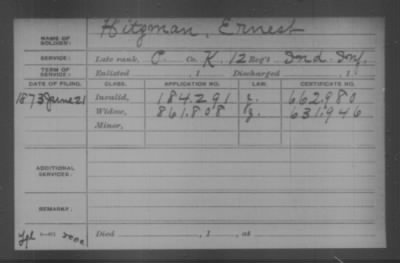 NAME OF SOLDIER: Hitzman, Ernest
SERVICE: Late rank, P Co. K, 12 Reg't Ind. Inf.
TERM OF SERVICE: Enlisted , 1 Discharged , 1
DATE OF FILING. CLASS. APPLICATION NO. LAW. CERTIFICATE NO.
1873 June 21 Invalid, 184.291 662.980
Widow, 861.808 631.946
Minor,
ADDITIONAL SERVICES:
REMARKS:
Died , 1 , at